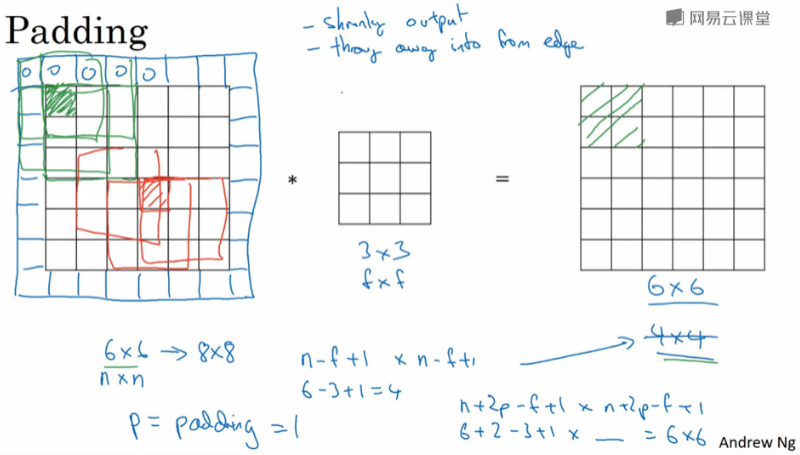 Padding
- shrinky output
- throw away info from edge
网易云课堂
0 0 0 0 0
*
=
3×3
f×f
6×6
4×4
6×6 → 8×8
n×n
n-f+1 × n-f+1
6-3+1=4
p = padding = 1
n+2p-f+1 × n+2p-f+1
6+2-3+1 × __ = 6×6
Andrew Ng